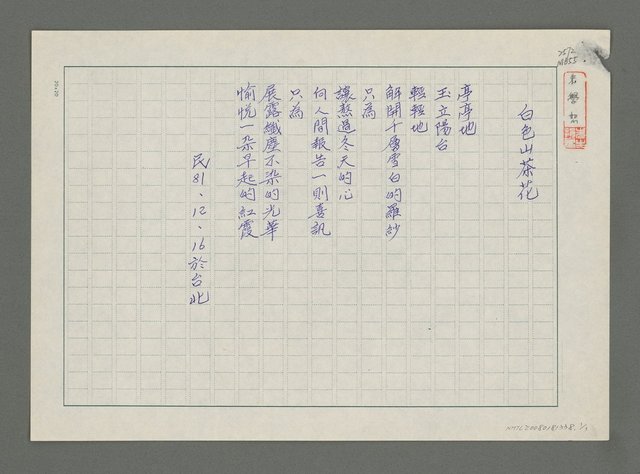 白色山茶花
亭亭地
玉立陽台
輕輕地
解開千層雪白的羅紗
只為
讓熬過冬天的心
向人間報告一則喜訊
只為
展露纖塵不染的光華
愉悅一朵早起的紅霞
民81、12、16於台北
25×20
NMTL20080181338.1/1